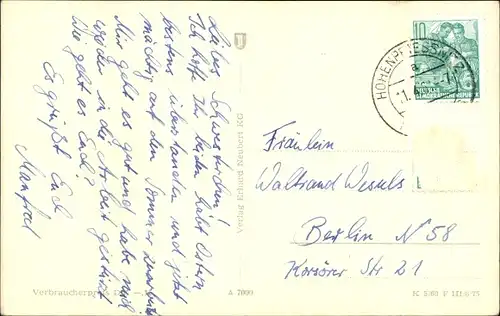 Liebes Schwesterchen!
Ich hoffe Ihr beiden habt Ostern
bestens überstanden und jetzt
mächtig auf den Sommer
Mir geht es gut und habe mich
wieder in die Arbeit gestürzt
Wie geht es Euch?
Es grüßt Euch
Manfred
Verlag Erhard Neubert KG
Verbraucherpr
A 7000
HOHENPRIESSNITZ
a
10
DEUTSCHE
DEMOKRATISCHE REPUBLIK
Fräulein
Waltraud Wesels
Berlin N 58
Korsörer Str 21